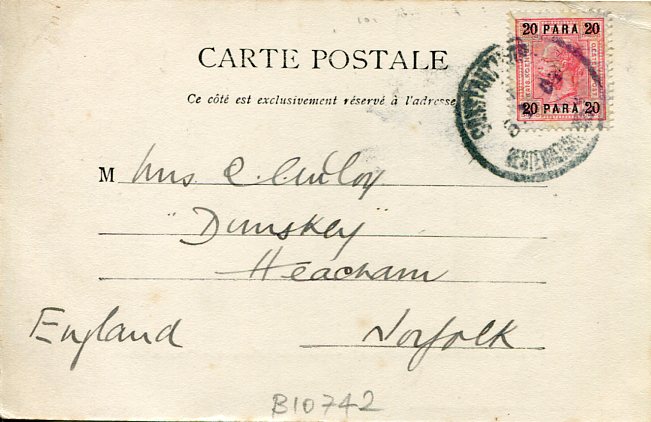 CARTE POSTALE
Ce côté est exclusivement réservé à l'adresse
20 PARA 20
20 PARA 20
M Mrs
"Dunskey"
Heacham
England Norfolk
B10742